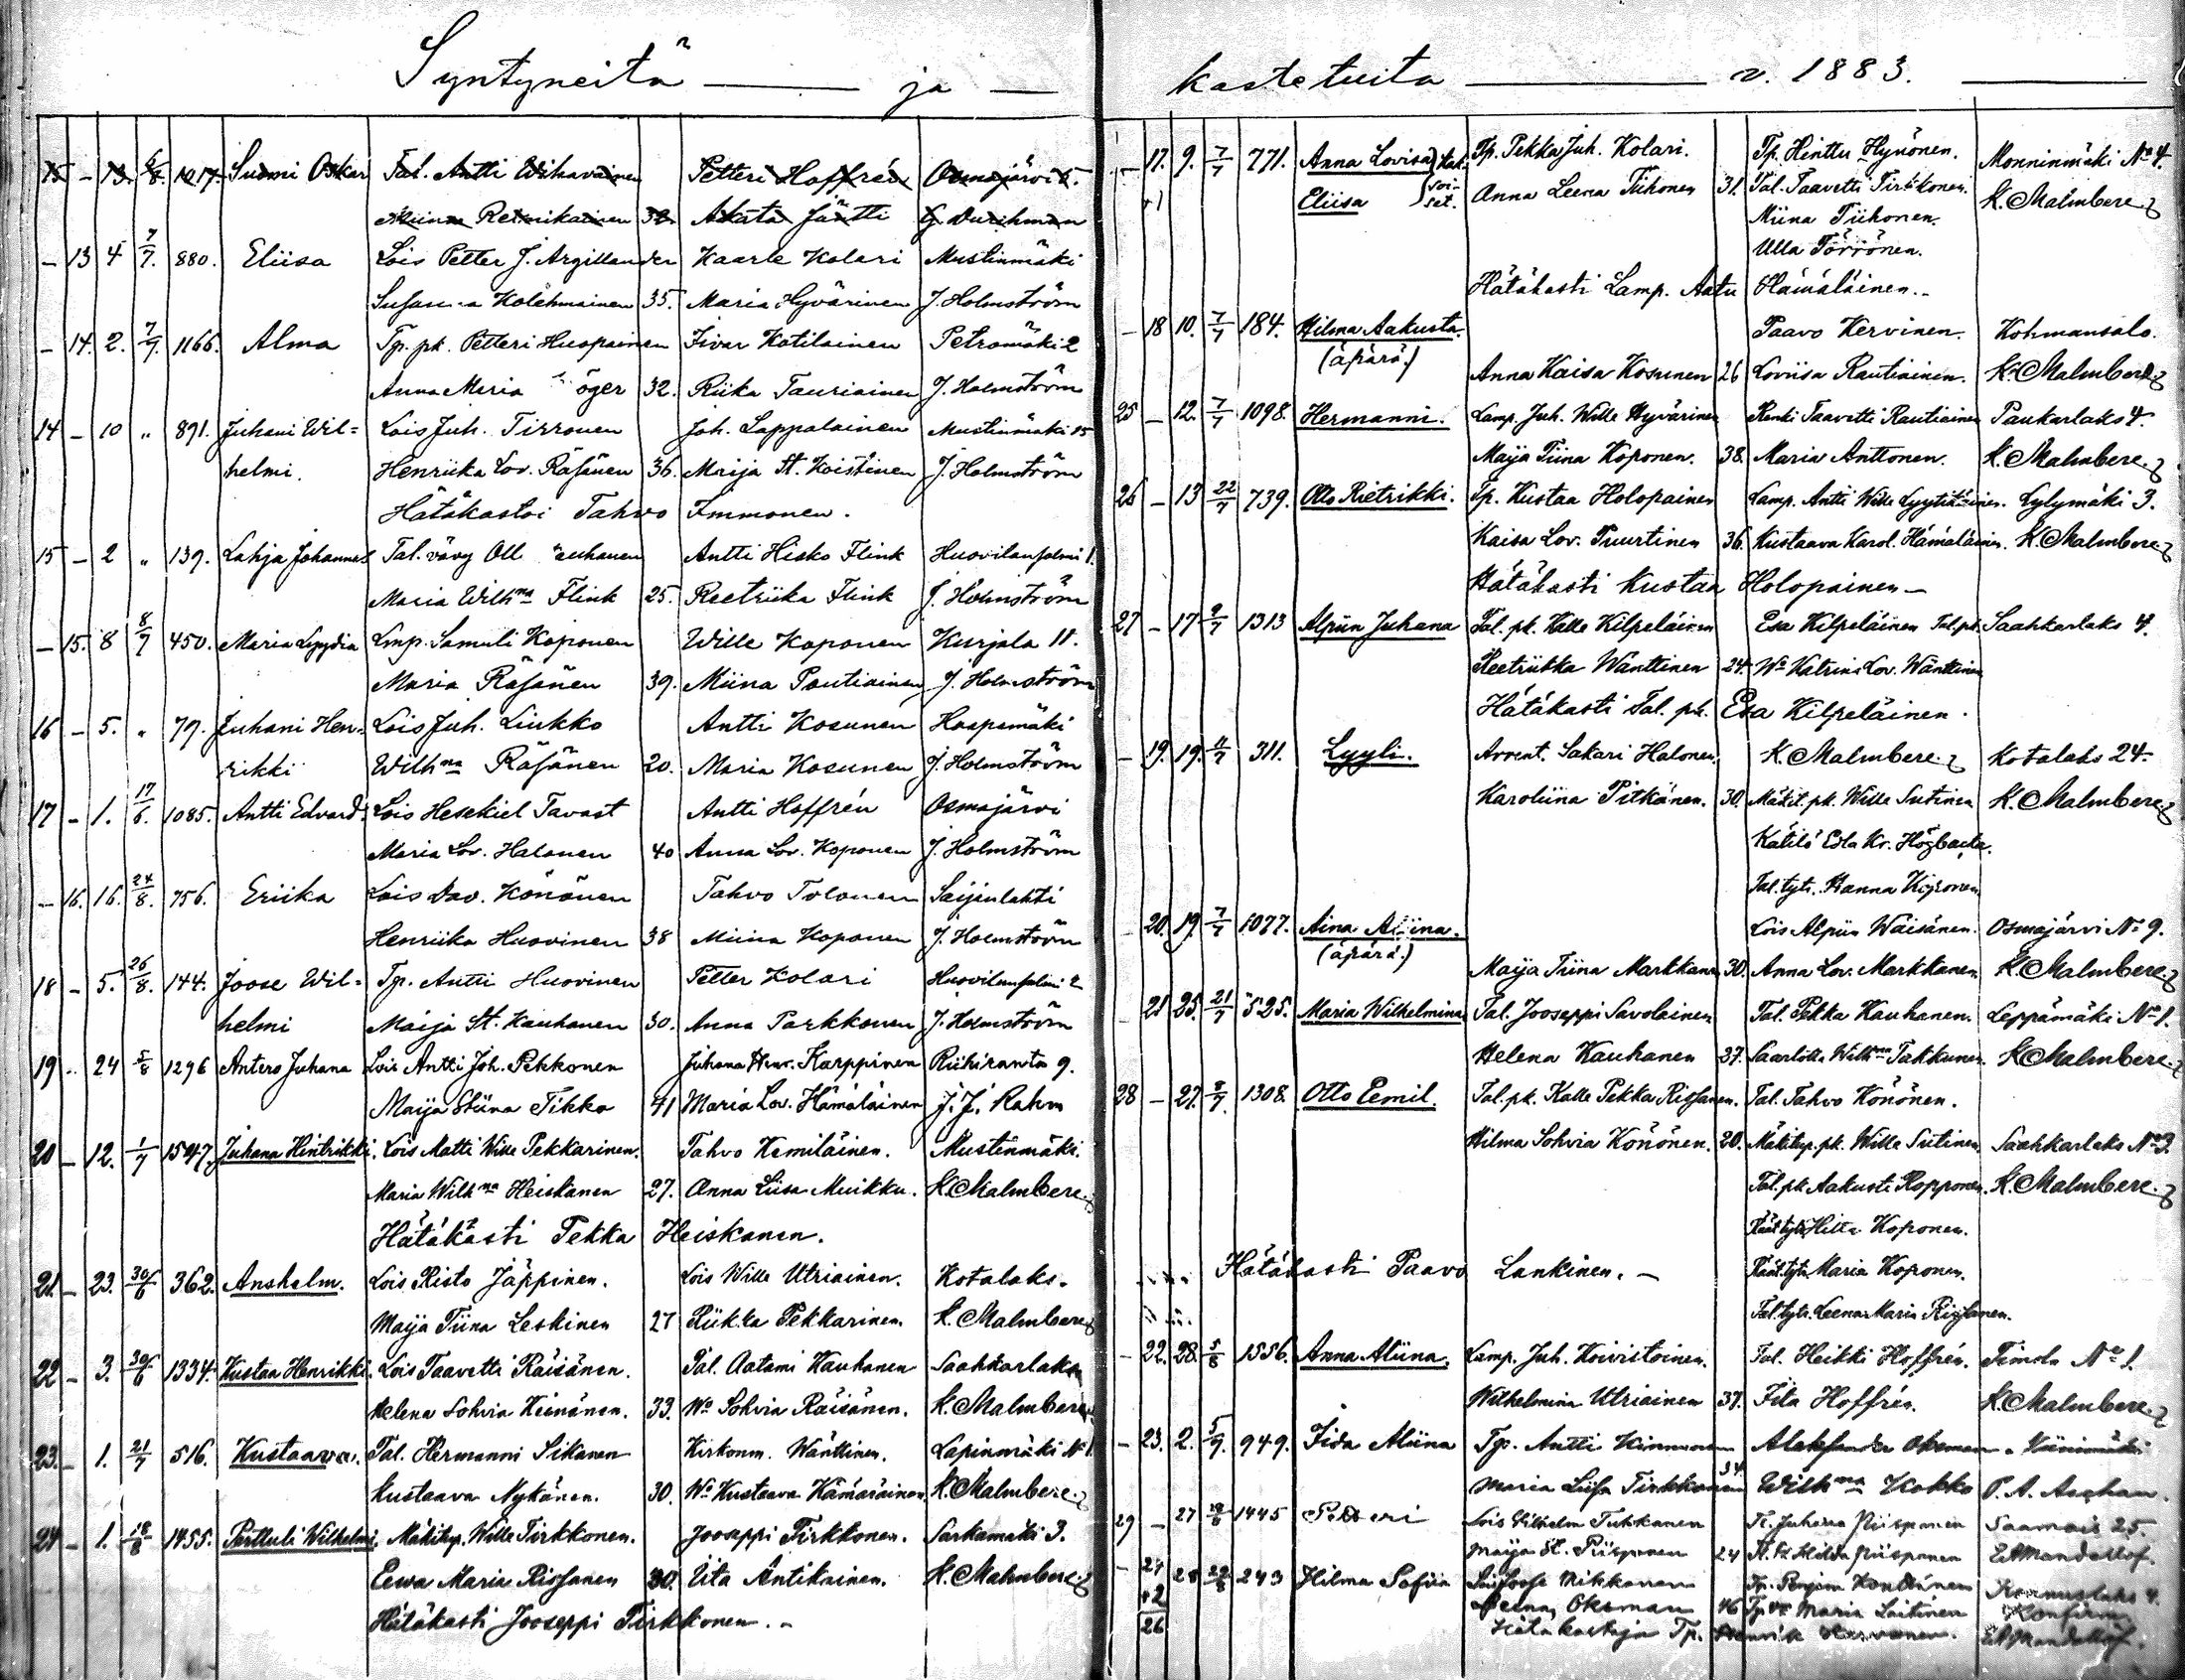 Syntyneitä — ja —
15 – 13. 6/8. 1017. Suomi Oskar Tal. Antti Wihavainen Petteri Hoffrén Osmajärvi 5.
Miina Reinikainen 32 Akata Jäntti G. Durchman
– 13 4 7/7. 880. Eliisa Lois Petter J. Argillander Kaarle Kolari Mustinmäki
Susanna Kolehmainen 35. Maria Hyvärinen J. Holmström
– 14. 2. 7/7. 1166. Alma Tp. pk. Petteri Huopainen Iivar Kotilainen Petromäki 2
Anna Maria öger 32. Riika Tauriainen J. Holmström
14 – 10 " 891. Juhani Wil= Lois Juh. Tirronen Joh. Lappalainen Mustinmäki 15
helmi. Henriika Lov. Räsänen 36. Maija St. Koistinen J. Holmström
Hätäkastoi Tahvo Immonen.
15 – 2 " 139. Lahja Johannes Tal. vävy Oll auhanen Antti Hisko Flink Huovilansalmi 1.
Maria Wilh:na Flink 25. Reetriika Flink J. Holmström
– 15. 8 8/7 450. Maria Lyydia Lmp. Samuli Koponen Wille Koponen Kurjala 11.
Maria Räsänen 39. Miina Pautiainen J. Holmström
16 – 5. " 79. Juhani Hen= Lois Juh. Liukko Antti Kosunen Haapamäki
rikki Wilh:na Räsänen 20. Maria Kosunen J. Holmström
17 – 1. 17/6. 1085. Antti Edvard Lois Hesekiel Tavast Antti Hoffrén Osmajärvi
Maria Lov. Halonen 40 Anna Lov. Koponen J. Holmström
– 16. 16. 24/8. 756. Eriika Lois Dav. Könönen Tahvo Tolonen Saijanlahti
Henriika Huovinen 38 Miina Koponen J. Holmström
18 – 5. 26/8. 144. Joose Wil= Tp. Antti Huovinen Petter Kolari Huovilansalmi 2
helmi Maija St. Kauhanen 30. Anna Parkkonen J. Holmström
19 .. 24 5/8 1296 Antero Juhana Lois Antti Joh. Pekkonen Juhana Henr. Karppinen Riihiranta 9.
Maija Stiina Tikka 41 Maria Lov. Hämäläinen J. J. Rahm
20 – 12. 1/7 1547. Juhana Hintrikki. Lois Matti Wille Pekkarinen. Tahvo Kemiläinen. Mustinmäki.
Maria Wilh:na Heiskanen 27. Anna Liisa Muikku. K. Malmberg
Hätäkasti Pekka Heiskanen.
21. – 23. 30/6 362. Anshelm. Lois Risto Jäppinen. Lois Wille Utriainen. Kotalaks.
Maija Tiina Leskinen 27 Riikka Pekkarinen. K. Malmberg
22 – 3. 30/6 1334. Kustaa Henrikki. Lois Taavetti Räisänen. Tal. Aatami Kauhanen Saahkarlaks
Helena Sohvia Keinänen. 33. Wo Sohvia Räisänen. K. Malmberg
23. – 1. 21/7 516. Kustaava. Tal. Hermanni Sikanen Kirkonm. Wänttinen. Lapinmäki No 1
Kustaava Nykänen. 30. Wo Kustaava Hämäräinen K. Malmberg
24 – 1. 18/8 1455. Parttuli Wilhelmi. Mäkitup. Wille Tirkkonen. Jooseppi Tirkkonen. Sarkamäki 3.
Eewa Maria Rissanen 30. Iita Antikainen. K. Malmberg
Hätäkasti Jooseppi Tirkkonen. –
kastetuita — v. 1883. —
– 17. 9. 7/7 771. Anna Lovisa } kak= Tp. Pekka Juh. Kolari. Tp. Hinttu Hynönen. Monninmäki No 4.
+1 Eliisa } soi= set. Anna Leena Tiihonen 31. Tal. Taavetti Tirkkonen. K. Malmberg
Miina Tiihonen.
Ulla Törrönen.
Hätäkasti Lamp. Aatu Hämäläinen. –
– 18 10. 7/7 184. Hilma Aakusta. Paavo Kervinen. Kohmansalo.
(äpärä.) Anna Kaisa Kosunen 26 Loviisa Rautiainen. K. Malmberg
25 – 12. 7/7 1098. Hermanni. Lamp. Juh. Wille Hyvärinen Renki Taavetti Rautiainen Paukarlaks 4.
Maija Tiina Koponen. 38. Maria Anttonen. K. Malmberg
26 – 13 22/7 739. Otto Rietrikki. Tp. Kustaa Holopainen Lamp. Antti Wille Lyytikäinen. Lylymäki 3.
Kaisa Lov. Tuurtinen 36. Kustaava Karol. Hämäläinen. K. Malmberg
Hätäkasti Kustaa Holopainen –
27 – 17 9/7 1313 Alpiin Juhana Tal. pk. Kalle Kilpeläinen Esa Kilpeläinen Tal.pk. Saahkarlaks 4.
Reetriikka Wänttinen 24. Wo Katrina Lov. Wänttinen
Hätäkasti Tal. pk. Esa Kilpeläinen.
– 19. 19. 11/7 311. Lyyli. Arrent. Sakari Halonen. K. Malmberg Kotalaks 24.
Karoliina Pitkänen. 30. Mäkit. pk. Wille Sutinen K. Malmberg
Kätilö Edla Kr. Högbacka.
Tal. tytr. Hanna Koponen
– 20. 19. 7/7 1077. Aina Aliina. Lois Alpiin Wäisänen. Osmajärvi No 9.
(äpärä.) Maija Tiina Markkanen 30. Anna Lov. Markkanen K. Malmberg
– 21 25. 21/7 525. Maria Wilhelmina Tal. Jooseppi Savolainen Tal. Pekka Kauhanen. Leppämäki No 1.
Helena Kauhanen 37. Saarlotta Wilh:na Takkunen. K. Malmberg
28 – 27. 8/7 1308. Otto Eemil. Tal. pk. Kalle Pekka Rissanen. Tal. Tahvo Könönen.
Hilma Sohvia Könönen. 20. Mäkitup. pk. Wille Sutinen. Saahkarlaks No 3.
Tal. pk. Aakusti Ropponen. K. Malmberg
Räät. tytr. Hilta Koponen.
Hätäkasti Paavo Lankinen. – Räät. tytr. Maria Koponen.
Tal. tytr. Leena Maria Rissanen.
– 22. 28. 5/8 1556. Anna Aliina. Lamp. Juh. Koivistoinen. Tal. Heikki Hoffrén. Timola No 1.
Wilhelmina Utriainen 37. Iita Hoffrén. K. Malmberg
– 23. 2. 5/9. 949. Iida Aliina Tp. Antti Kinnunen Aleksander Oksman
Maria Liisa Tirkkonen 34. Wilh:na Kokko P. A. Ascham.
29 – 27 19/8 1445 Petteri Lois Vilhelm Tuhkanen Tl. Juhana Piisponen Saamais 25.
Maija St. Piisponen 24 Hilda Piisponen
– 24 28 22/8 243 Hilma Sofiia Lois Joose Mikkonen Tp. Konnuslaks 4.
+2 Leena Oksman 46 Maria Laitinen
26 Hätäkastaja Tp.